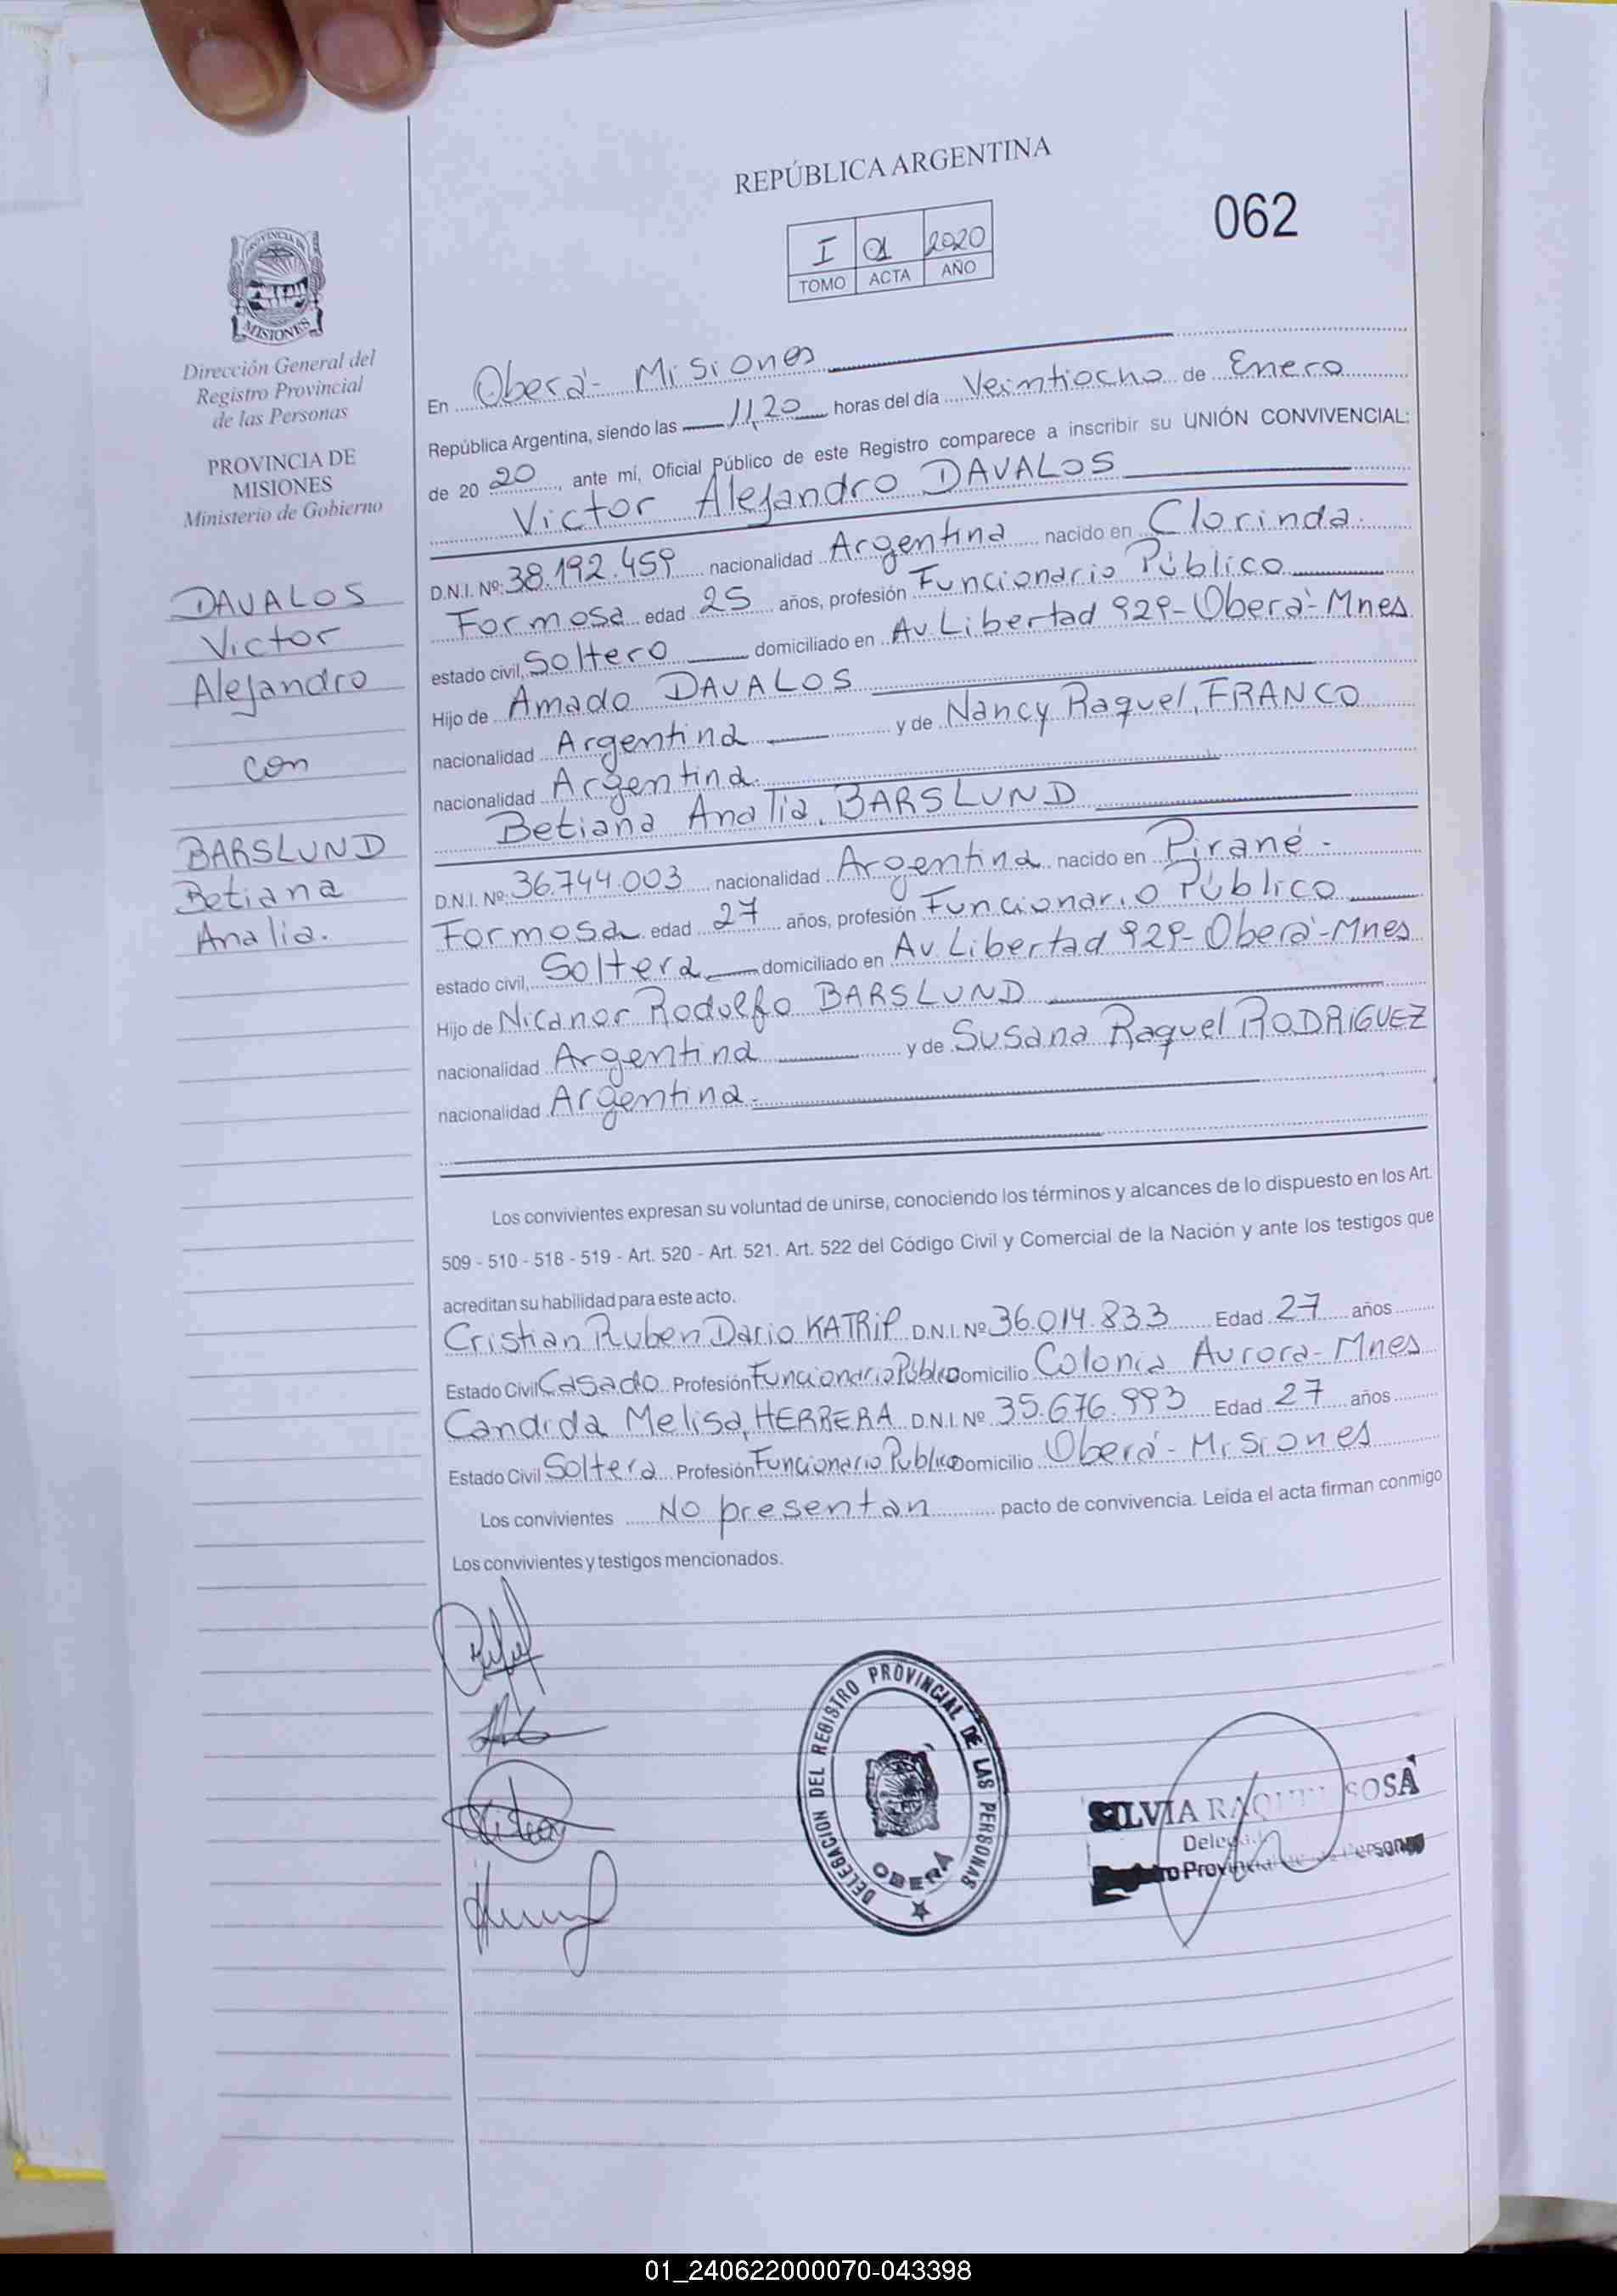 REPÚBLICA ARGENTINA
062
I 01 2020
TOMO ACTA AÑO
PROVINCIA DE
MISIONES
Dirección General del
Registro Provincial
de las Personas
PROVINCIA DE
MISIONES
Ministerio de Gobierno
DAVALOS
Victor
Alejandro
con
BARSLUND
Betiana
Analia.
En Oberá - Misiones
República Argentina, siendo las 11,20 horas del día Veintiocho de Enero
de 20 20, ante mí, Oficial Público de este Registro comparece a inscribir su UNIÓN CONVIVENCIAL:
Victor Alejandro DAVALOS
D.N.I. Nº: 38.192.459 nacionalidad Argentina nacido en Clorinda.
Formosa edad 25 años, profesión Funcionario Público
estado civil, Soltero domiciliado en Av. Libertad 929 - Oberá - Mnes
Hijo de Amado DAVALOS
nacionalidad Argentina y de Nancy Raquel, FRANCO
nacionalidad Argentina.
Betiana Analia, BARSLUND
D.N.I. Nº: 36.744.003 nacionalidad Argentina nacido en Pirané -
Formosa edad 27 años, profesión Funcionario Público
estado civil, Soltera domiciliado en Av. Libertad 929 - Oberá - Mnes
Hijo de Nicanor Rodolfo BARSLUND
nacionalidad Argentina y de Susana Raquel RODRIGUEZ
nacionalidad Argentina.
Los convivientes expresan su voluntad de unirse, conociendo los términos y alcances de lo dispuesto en los Art.
509 - 510 - 518 - 519 - Art. 520 - Art. 521. Art. 522 del Código Civil y Comercial de la Nación y ante los testigos que
acreditan su habilidad para este acto.
Cristian Ruben Dario KATRIP D.N.I. Nº 36.014.833 Edad 27 años
Estado Civil Casado Profesión Funcionario Público Domicilio Colonia Aurora - Mnes
Candida Melisa, HERRERA D.N.I. Nº 35.676.993 Edad 27 años
Estado Civil Soltera Profesión Funcionario Publico Domicilio Oberá - Misiones
Los convivientes No presentan pacto de convivencia. Leída el acta firman conmigo
Los convivientes y testigos mencionados.
DELEGACION DEL REGISTRO PROVINCIAL DE LAS PERSONAS
OBERA
SILVIA RAQUEL SOSA
Registro Provincial de las Personas
01_240622000070-043398